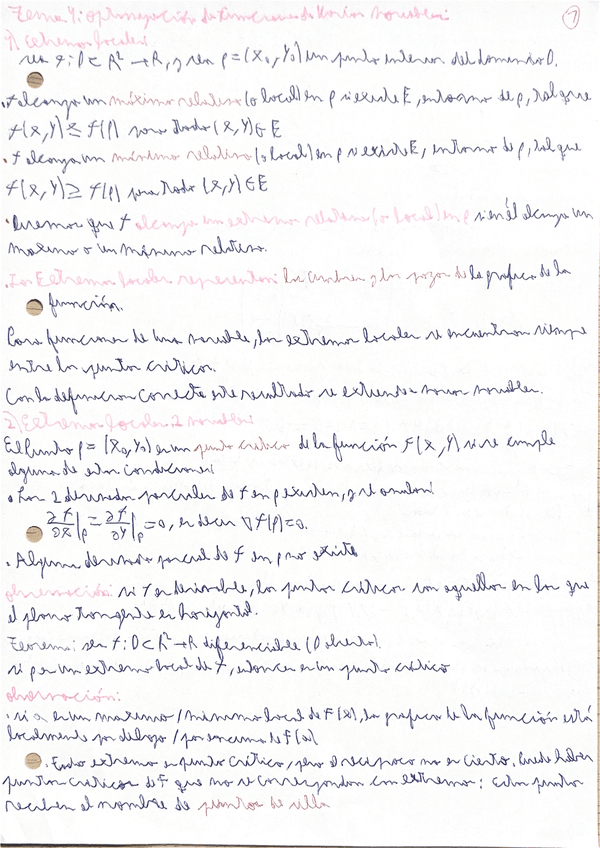 Tema 4: optimización de funciones de Varias variables
1) Extremos locales
sea f: D ⊂ R² → R, y sea p = (x₀, y₀) un punto interior del dominio D.
· f alcanza un máximo relativo (o local) en p si existe E, entorno de p, tal que
f(x,y) ≤ f(p) para todo (x,y) ∈ E
· f alcanza un mínimo relativo (o local) en p si existe E, entorno de p, tal que
f(x,y) ≥ f(p) para todo (x,y) ∈ E
· Diremos que f alcanza un extremo relativo (o local) en p si en él alcanza un
maximo o un mínimo relativo.
· Los Extremos locales representan las cumbres y los pozos de la grafica de la
función.
Para funciones de una variable, los extremos locales se encuentran siempre
entre los puntos críticos.
Con la definicion correcta este resultado se extiende a varias variables.
2) Extremos locales 2 variables
El Punto p = (x₀, y₀) es un punto critico de la función F(x,y) si se cumple
alguna de estas condiciones:
· Las 2 derivadas parciales de f en p existen, y se anulan:
∂f/∂x|p = ∂f/∂y|p = 0, es decir ∇f(p) = 0.
· Alguna derivada parcial de f en p no existe
observación: si f es derivable, los puntos críticos son aquellos en los que
el plano tangente es horizontal.
Teorema: sea f: D ⊂ R² → R diferenciable (D abierto).
si p es un extremo local de f, entonces es un punto crítico
observación:
· si a es un maximo / minimo local de F(x), la grafica de la función está
localmente por debajo / por encima de f(a)
· Todo extremo es punto crítico, pero el reciproco no es cierto. Puede haber
puntos criticos de F que no se correspondan con extremos: Estos puntos
reciben el nombre de puntos de silla